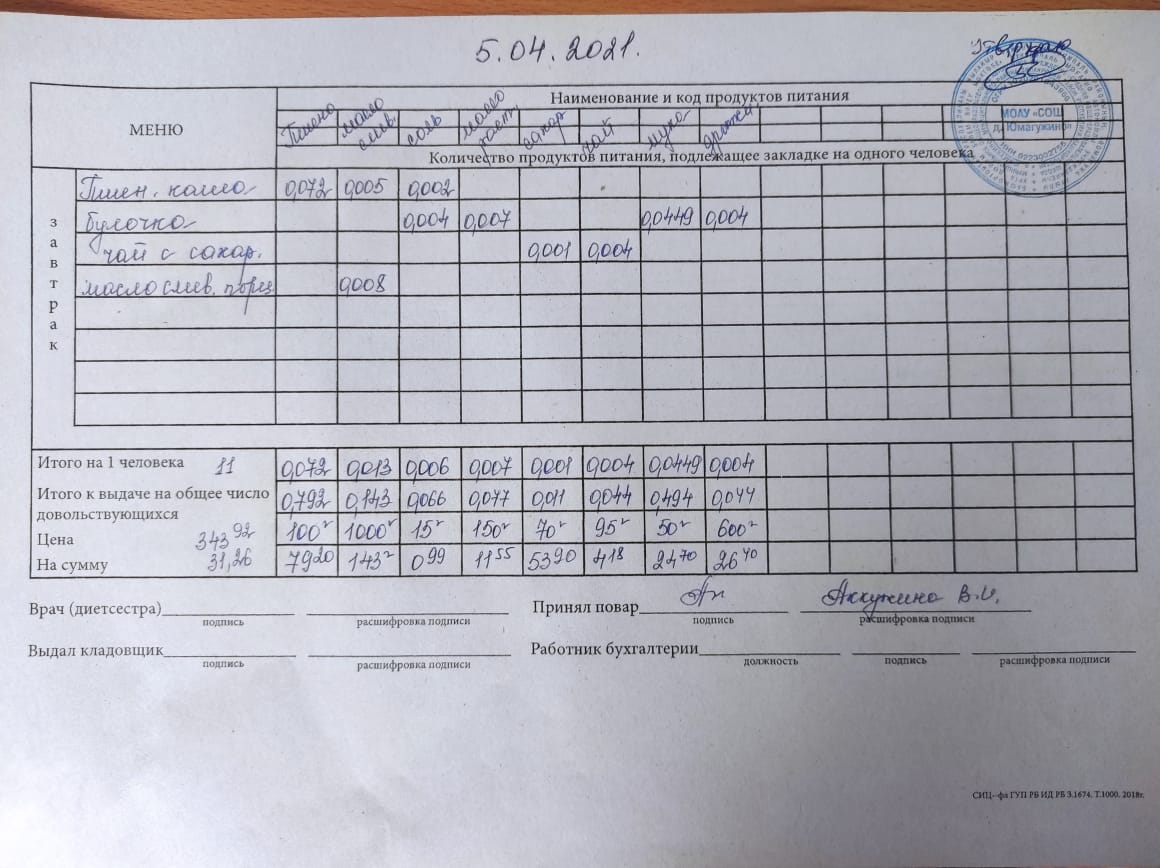 5.04.2021.
Утверждаю
МЕНЮ
Наименование и код продуктов питания
Пшено масло слив. соль масло раст. сахар чай мука дрожжи
МОАУ «СОШ
д. Юмагужино»
Количество продуктов питания, подлежащее закладке на одного человека
завтрак
Пшен. каша 0,072 0,005 0,002
булочка 0,004 0,007 0,0449 0,004
чай с сахар. 0,001 0,004
масло слив. порц 0,008
Итого на 1 человека 11 0,072 0,013 0,006 0,007 0,001 0,004 0,0449 0,004
Итого к выдаче на общее число 0,792 0,143 0,066 0,077 0,011 0,044 0,494 0,044
довольствующихся
Цена 343 92 100 1000 15 150 70 95 50 600
На сумму 31,26 79 20 143 0 99 11 55 53 90 4 18 24 70 26 40
Врач (диетсестра) Принял повар Аккужина В.И.
подпись расшифровка подписи подпись расшифровка подписи
Выдал кладовщик Работник бухгалтерии
подпись расшифровка подписи должность подпись расшифровка подписи
СИЦ- фл ГУП РБ ИД РБ З.1674. Т.1000. 2018г.